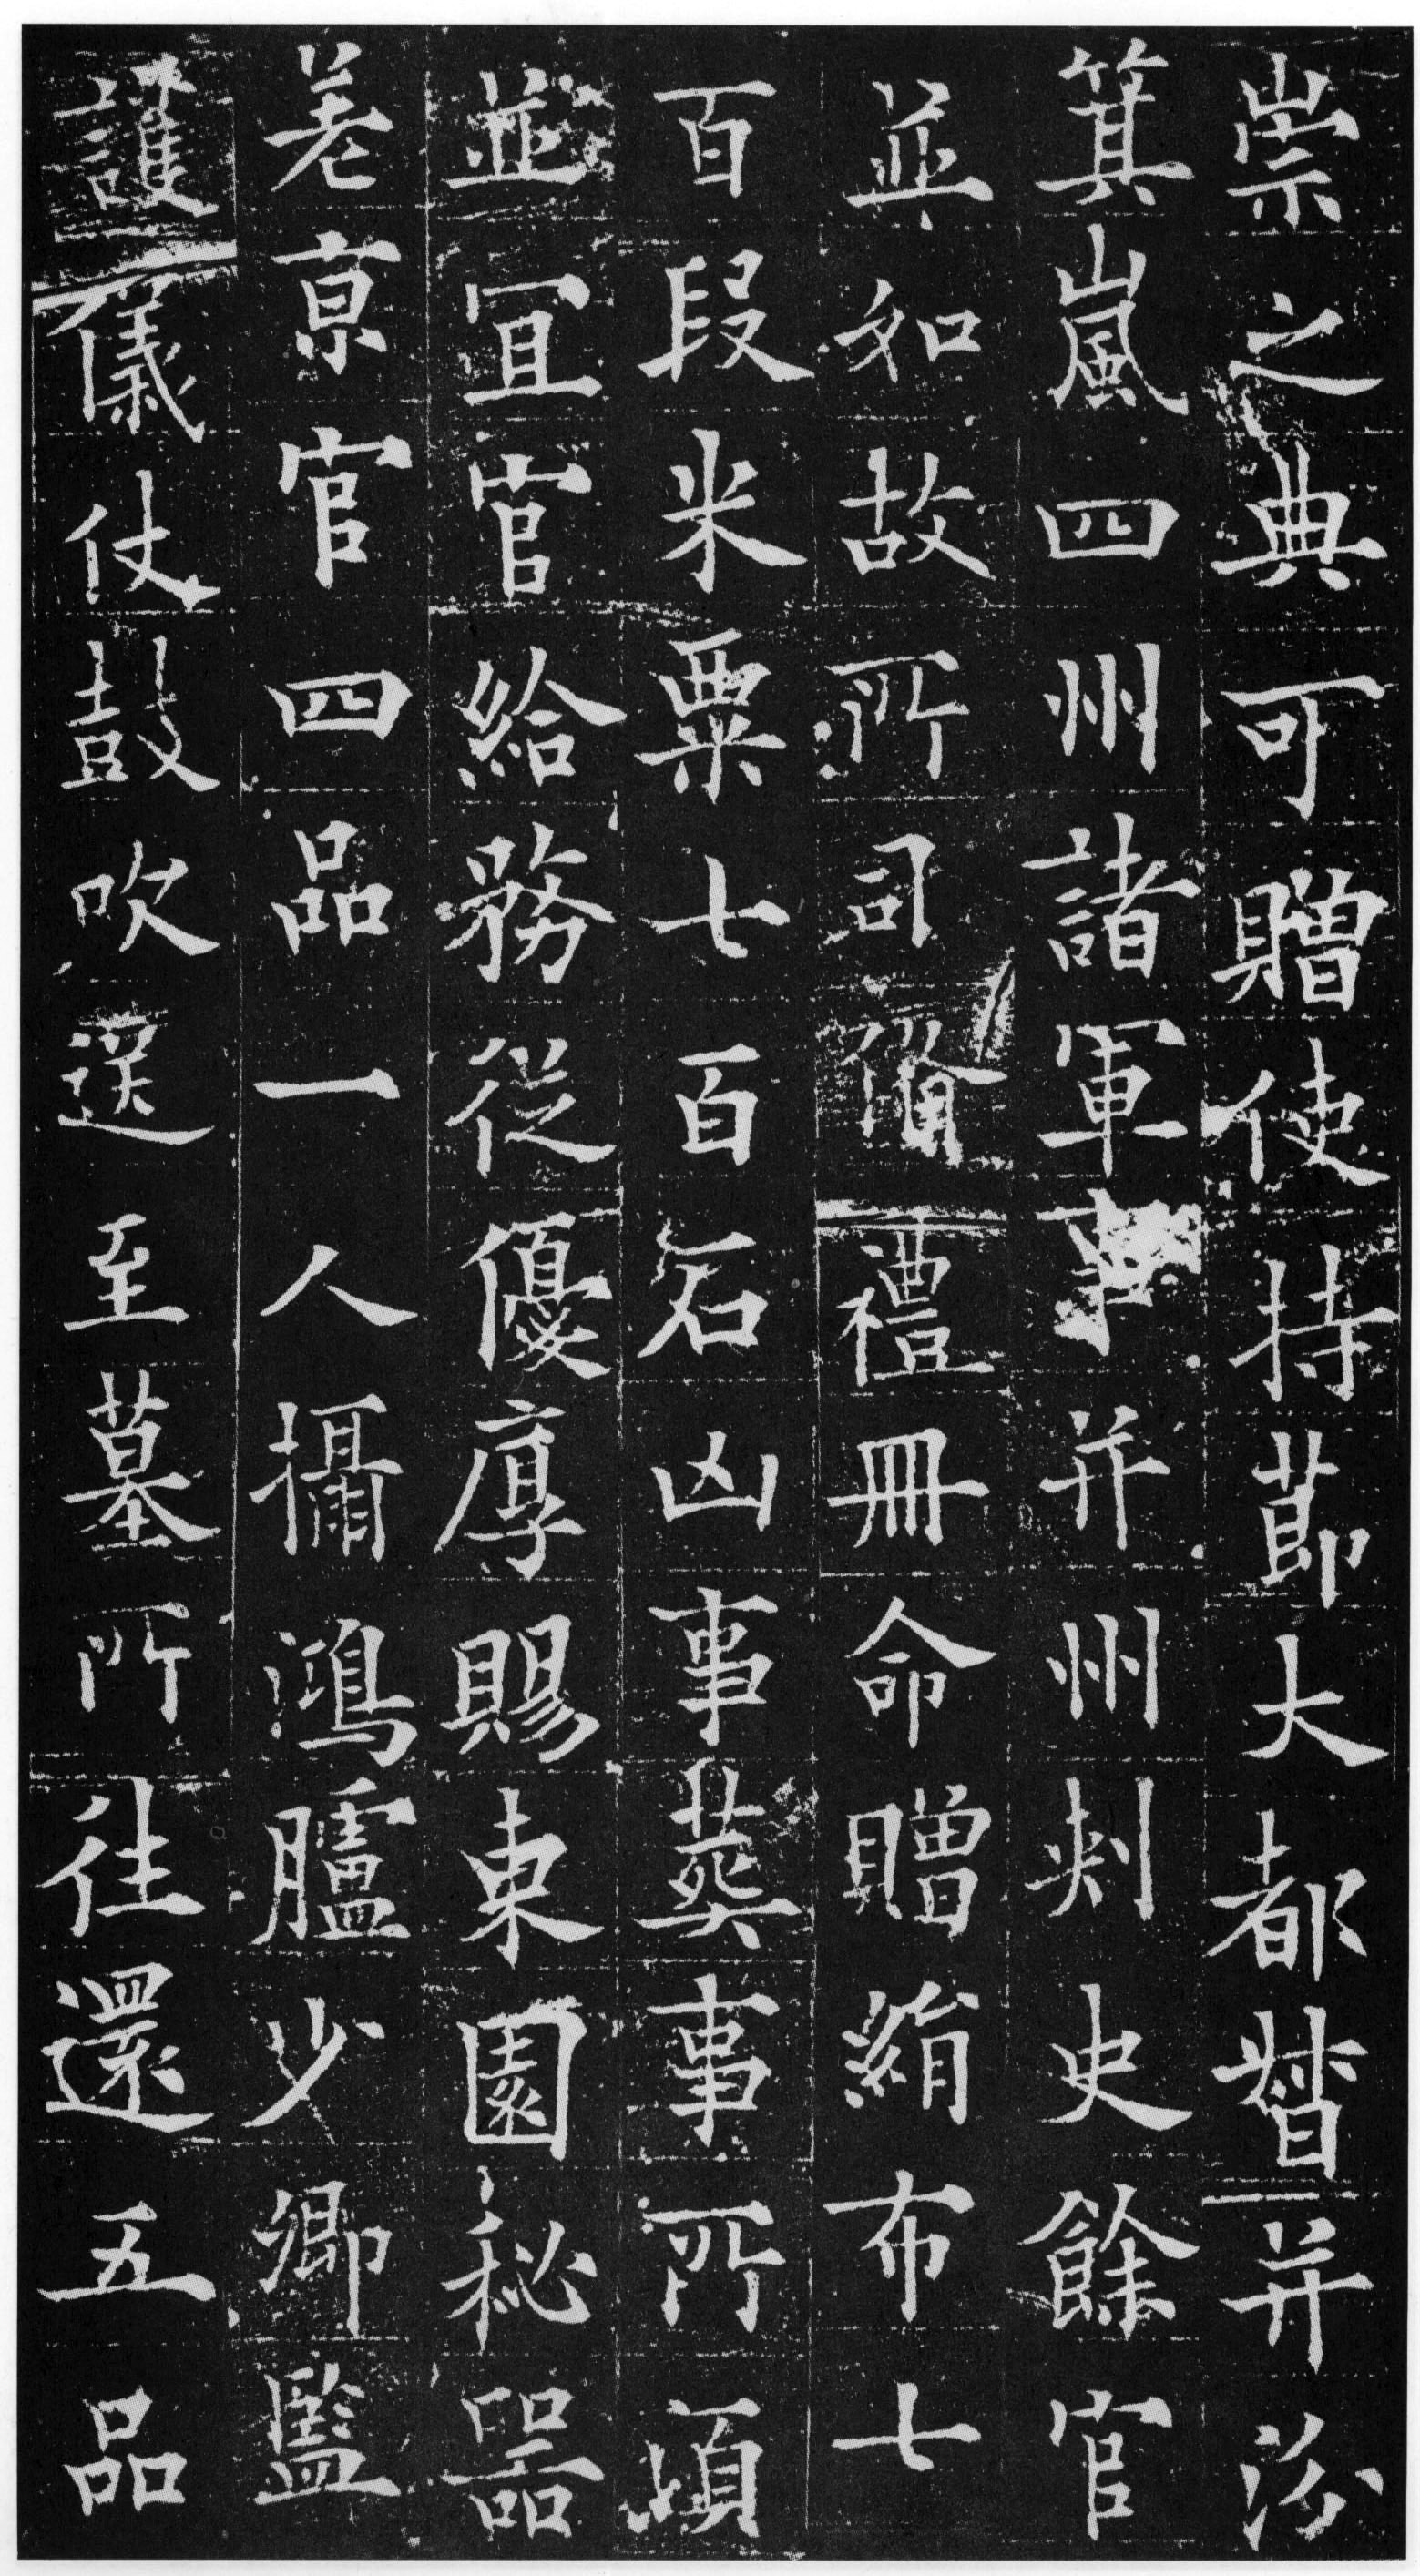 崇之典可贈使持節大都督并汾
箕嵐四州諸軍事并州刺史餘官
並如故所司備禮冊命贈絹布七
百段米粟七百石凶事葬事所須
並宜官給務從優厚賜東園秘器
差京官四品一人攝鴻臚少卿監
護儀仗鼓吹送至墓所往還五品